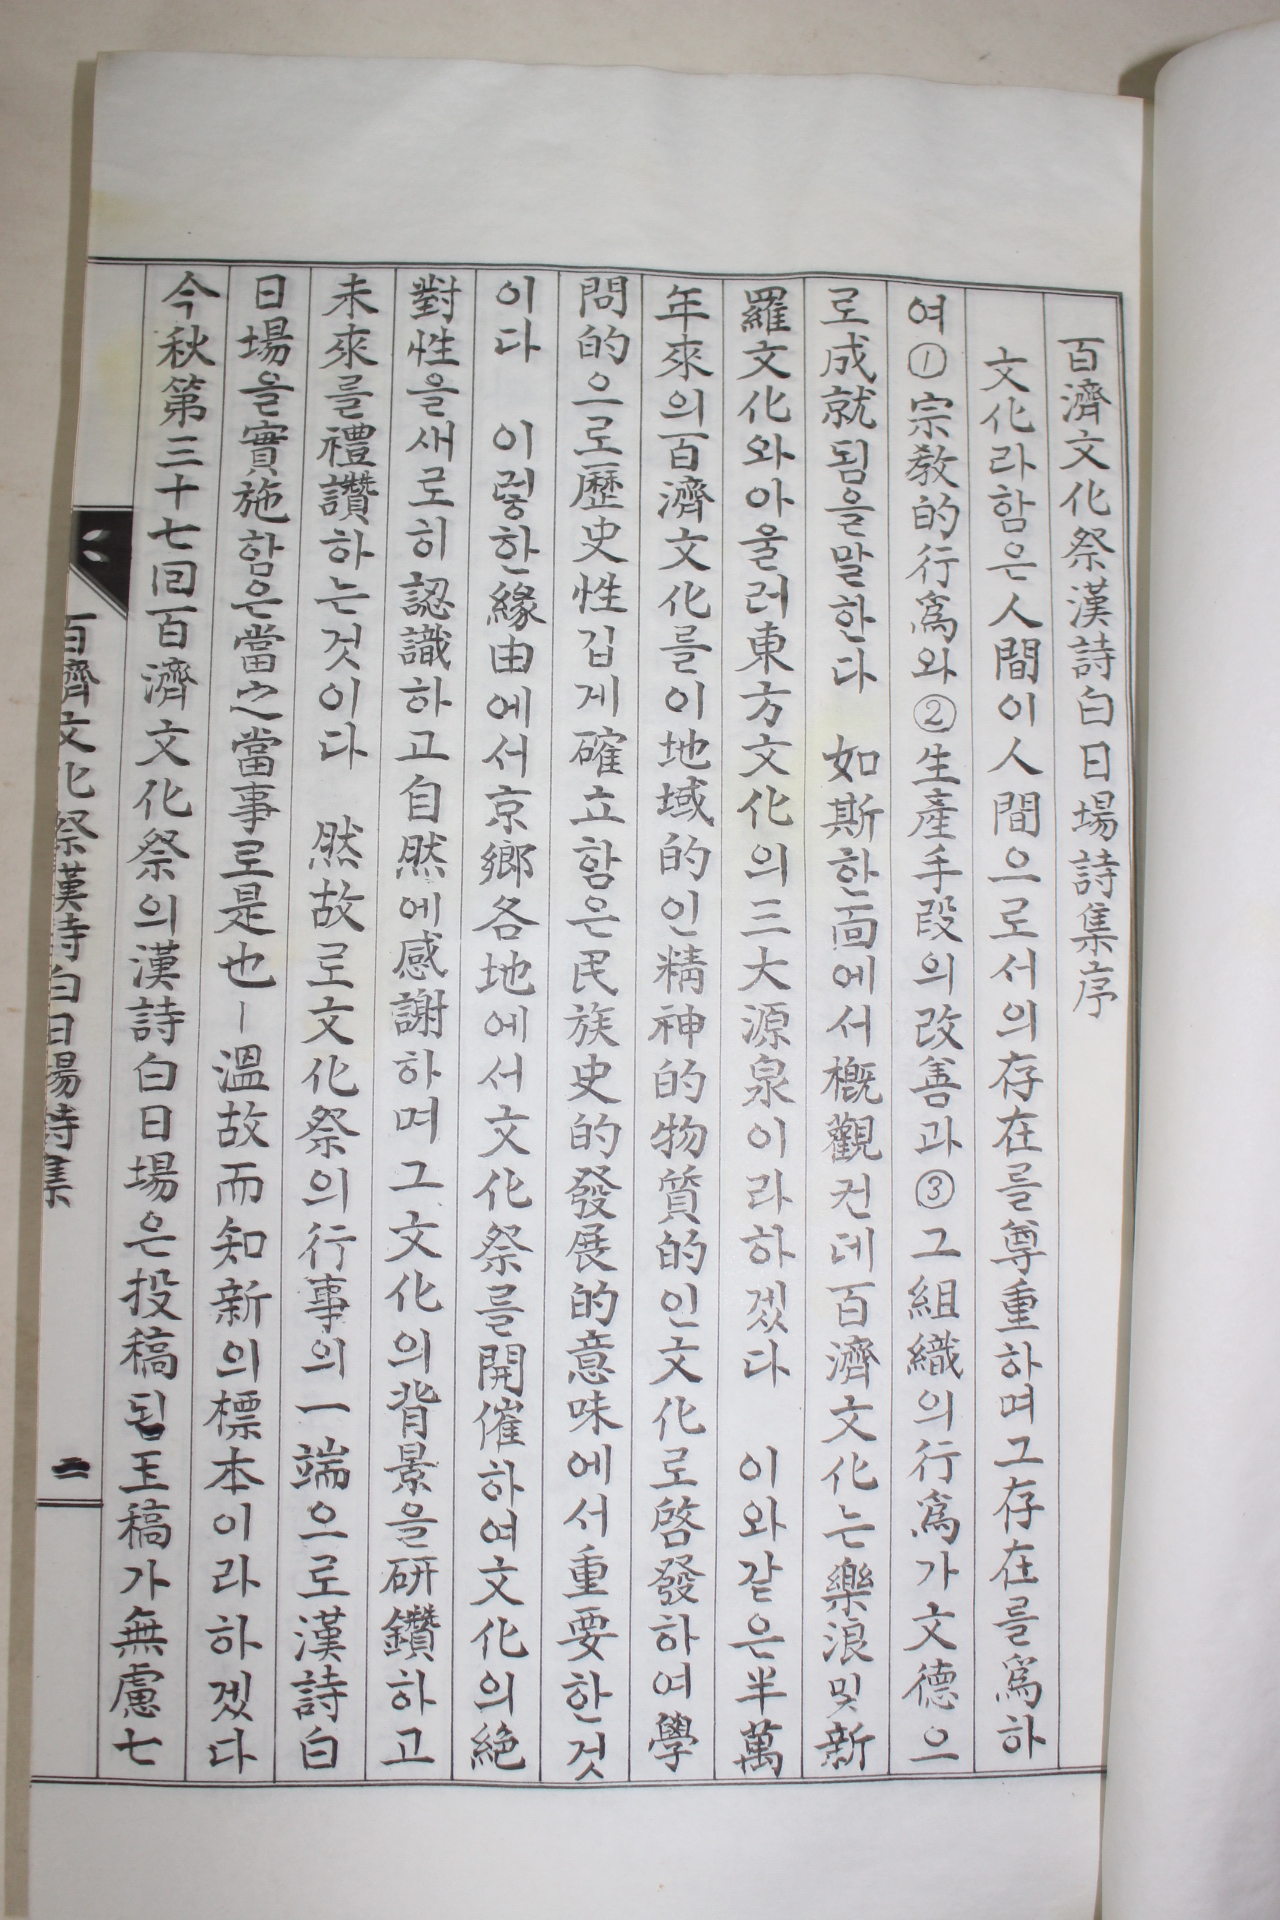 百濟文化祭漢詩白日場詩集序
文化라함은人間이人間으로서의存在를尊重하며그存在를爲하
여①宗敎的行爲와②生產手段의改善과③그組織의行爲가文德으
로成就됨을말한다 如斯한面에서槪觀컨데百濟文化는樂浪및新
羅文化와아울러東方文化의三大源泉이라하겠다 이와같은半萬
年來의百濟文化를이地域的인精神的物質的인文化로啓發하여學
問的으로歷史性깁게確立함은民族史的發展的意味에서重要한것
이다 이렇한緣由에서京鄉各地에서文化祭를開催하여文化의絶
對性을새로히認識하고自然에感謝하며그文化의背景을硏鑽하고
未來를禮讚하는것이다 然故로文化祭의行事의一端으로漢詩白
日場을實施함은當之當事로是也―溫故而知新의標本이라하겠다
今秋第三十七回百濟文化祭의漢詩白日場은投稿된玉稿가無慮七
百濟文化祭漢詩白日場詩集
二